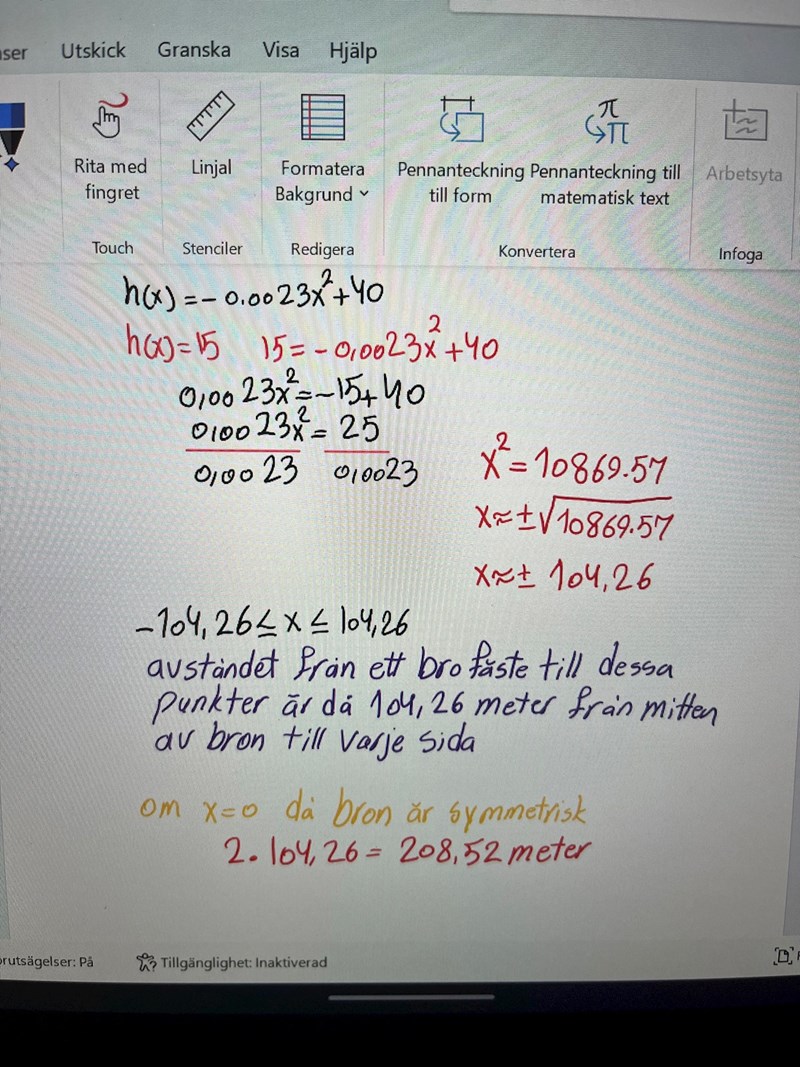 Utskick Granska Visa Hjälp
Rita med fingret
Linjal
Formatera Bakgrund
Pennanteckning till form
Pennanteckning till matematisk text
Arbetsyta
Touch Stenciler Redigera Konvertera Infoga
h(x)=-0.0023x²+40
h(x)=15 15=-0,0023x²+40
0,0023x²=-15+40
0,0023x²=25
0,0023 0,0023
x²=10869.57
x≈±√10869.57
x≈±104,26
-104,26≤x≤104,26
avståndet från ett brofäste till dessa
punkter är då 104,26 meter från mitten
av bron till varje sida
om x=0 då bron är symmetrisk
2·104,26=208,52 meter
Tillgänglighet: Inaktiverad